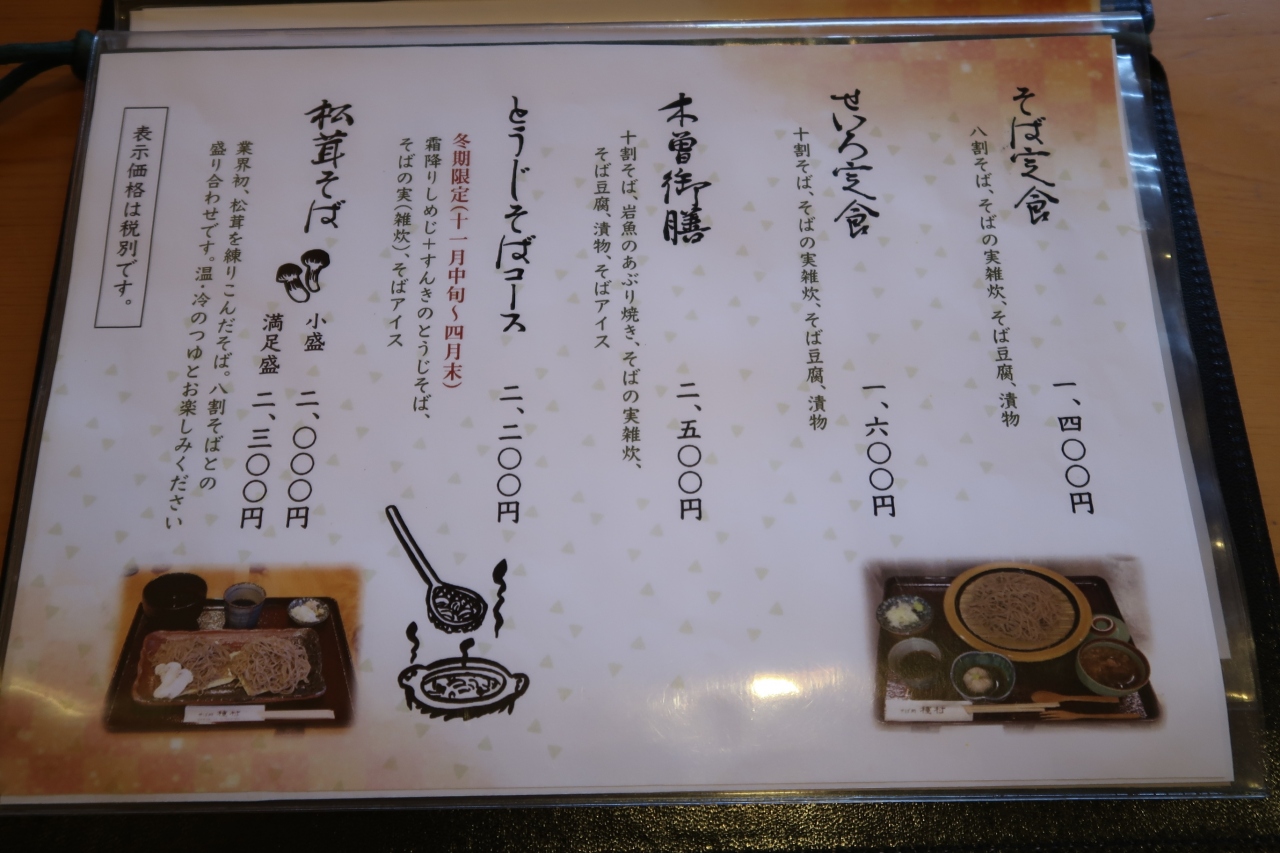 そば定食
一、四〇〇円
八割そば、そばの実雑炊、そば豆腐、漬物
せいろ定食
一、六〇〇円
十割そば、そばの実雑炊、そば豆腐、漬物
木曽御膳
二、五〇〇円
十割そば、岩魚のあぶり焼き、そばの実雑炊、
そば豆腐、漬物、そばアイス
とうじそばコース
二、二〇〇円
冬期限定(十一月中旬〜四月末)
霜降りしめじ+すんきのとうじそば、
そばの実(雑炊)、そばアイス
松茸そば
小盛 二、〇〇〇円
満足盛 二、三〇〇円
業界初、松茸を練りこんだそば。八割そばとの
盛り合わせです。温・冷のつゆとお楽しみください
表示価格は税別です。